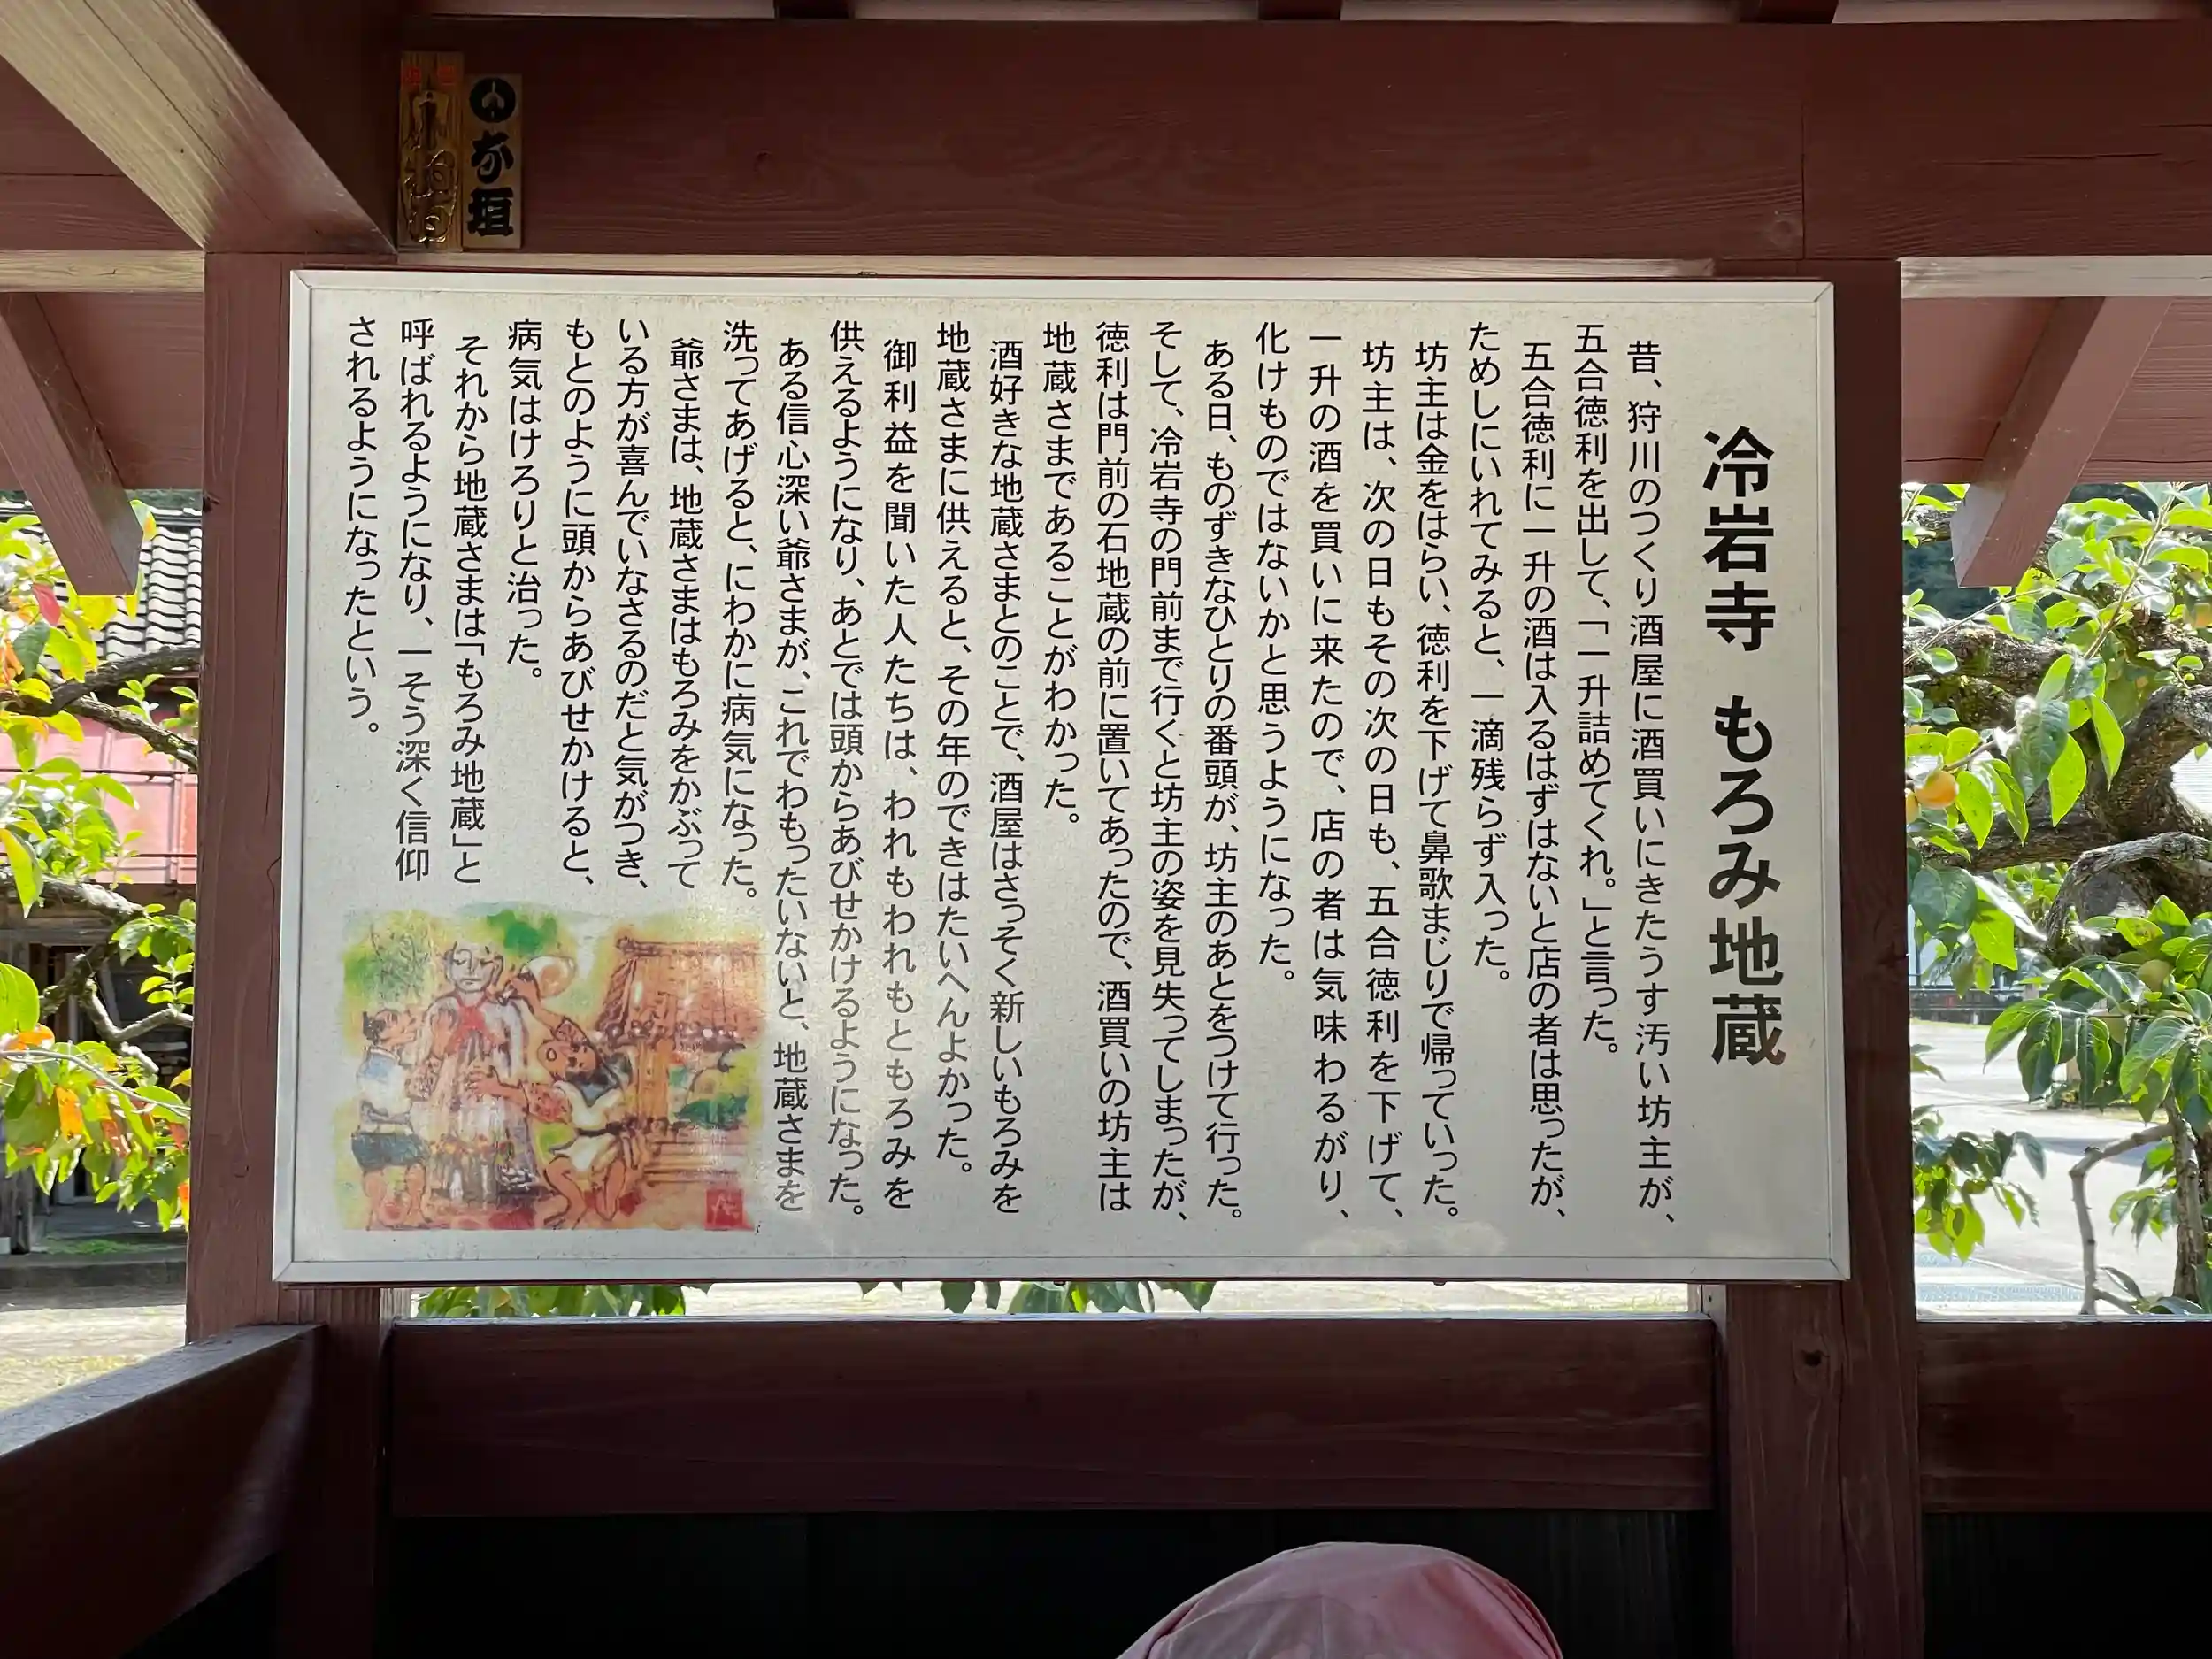 冷岩寺 もろみ地蔵
昔、狩川のつくり酒屋に酒買いにきたうす汚い坊主が、
五合徳利を出して、「一升詰めてくれ。」と言った。
五合徳利に一升の酒は入るはずはないと店の者は思ったが、
ためしにいれてみると、一滴残らず入った。
坊主は金をはらい、徳利を下げて鼻歌まじりで帰っていった。
坊主は、次の日もその次の日も、五合徳利を下げて、
一升の酒を買いに来たので、店の者は気味わるがり、
化けものではないかと思うようになった。
ある日、ものずきなひとりの番頭が、坊主のあとをつけて行った。
そして、冷岩寺の門前まで行くと坊主の姿を見失ってしまったが、
徳利は門前の石地蔵の前に置いてあったので、酒買いの坊主は
地蔵さまであることがわかった。
酒好きな地蔵さまとのことで、酒屋はさっそく新しいもろみを
地蔵さまに供えると、その年のできはたいへんよかった。
御利益を聞いた人たちは、われもわれもともろみを
供えるようになり、あとでは頭からあびせかけるようになった。
ある信心深い爺さまが、これでわもったいないと、地蔵さまを
洗ってあげると、にわかに病気になった。
爺さまは、地蔵さまはもろみをかぶって
いる方が喜んでいなさるのだと気がつき、
もとのように頭からあびせかけると、
病気はけろりと治った。
それから地蔵さまは「もろみ地蔵」と
呼ばれるようになり、一そう深く信仰
されるようになったという。